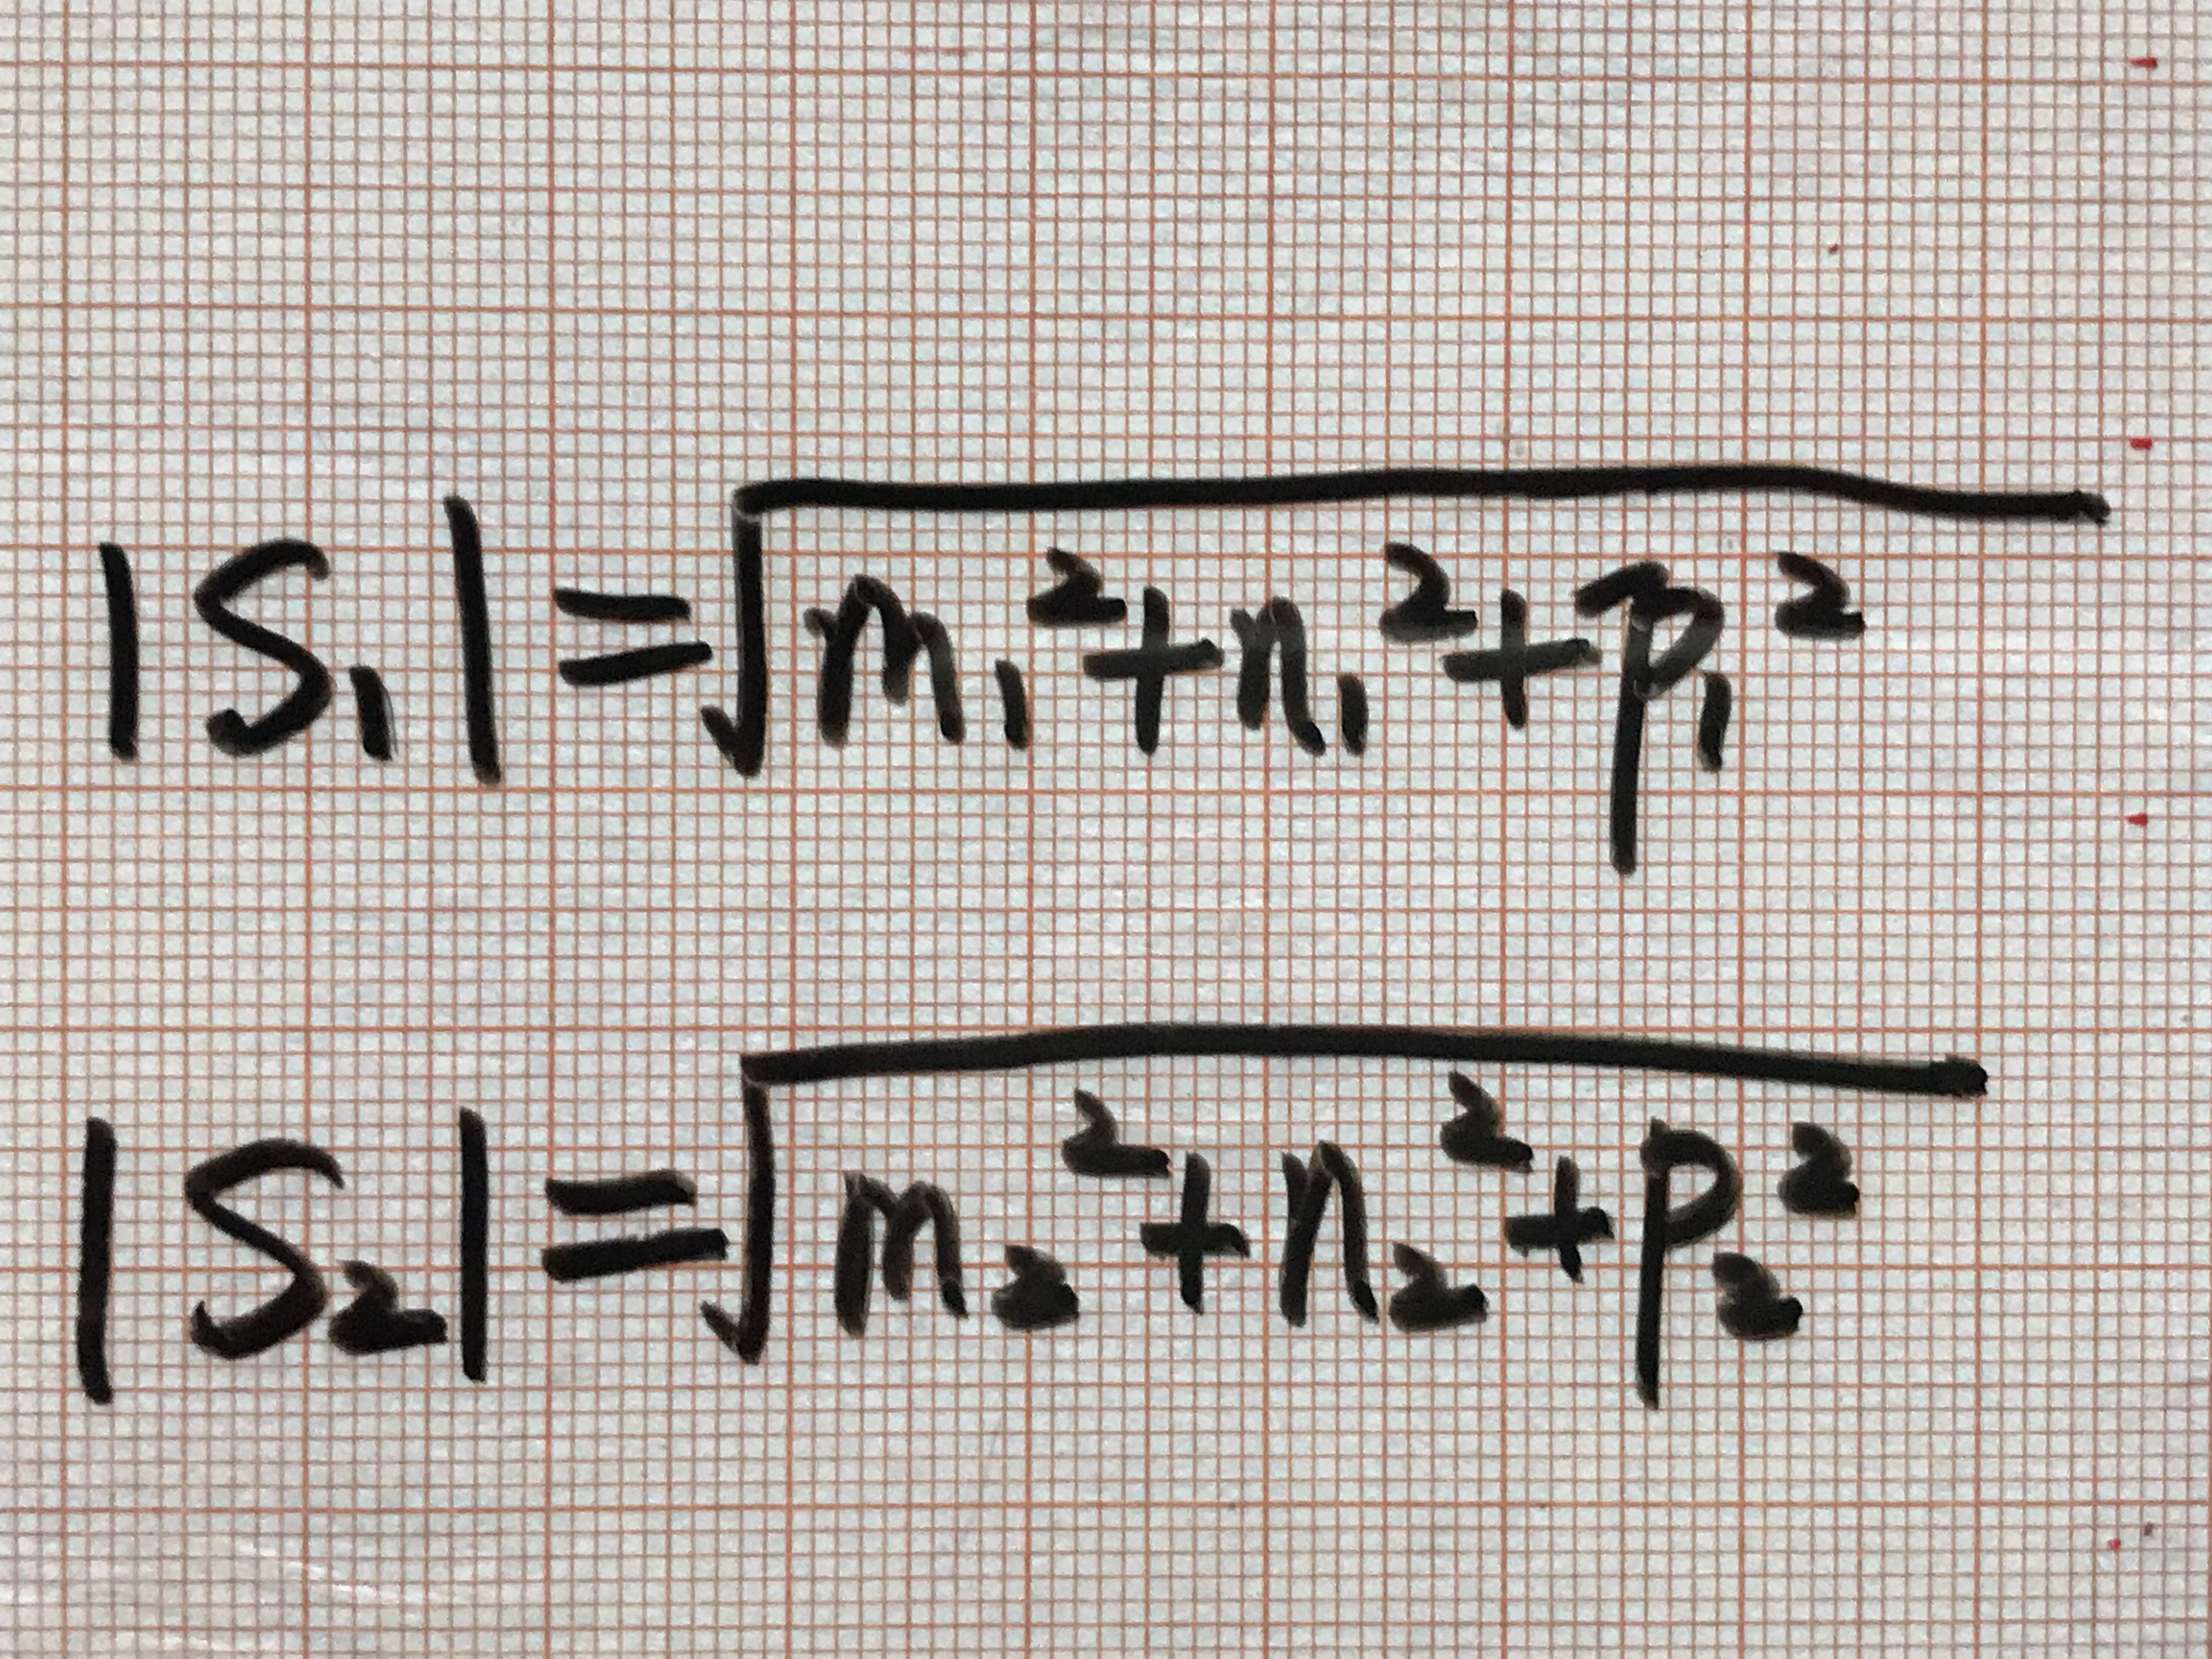 |S₁|=√(m₁²+n₁²+p₁²)
|S₂|=√(m₂²+n₂²+p₂²)